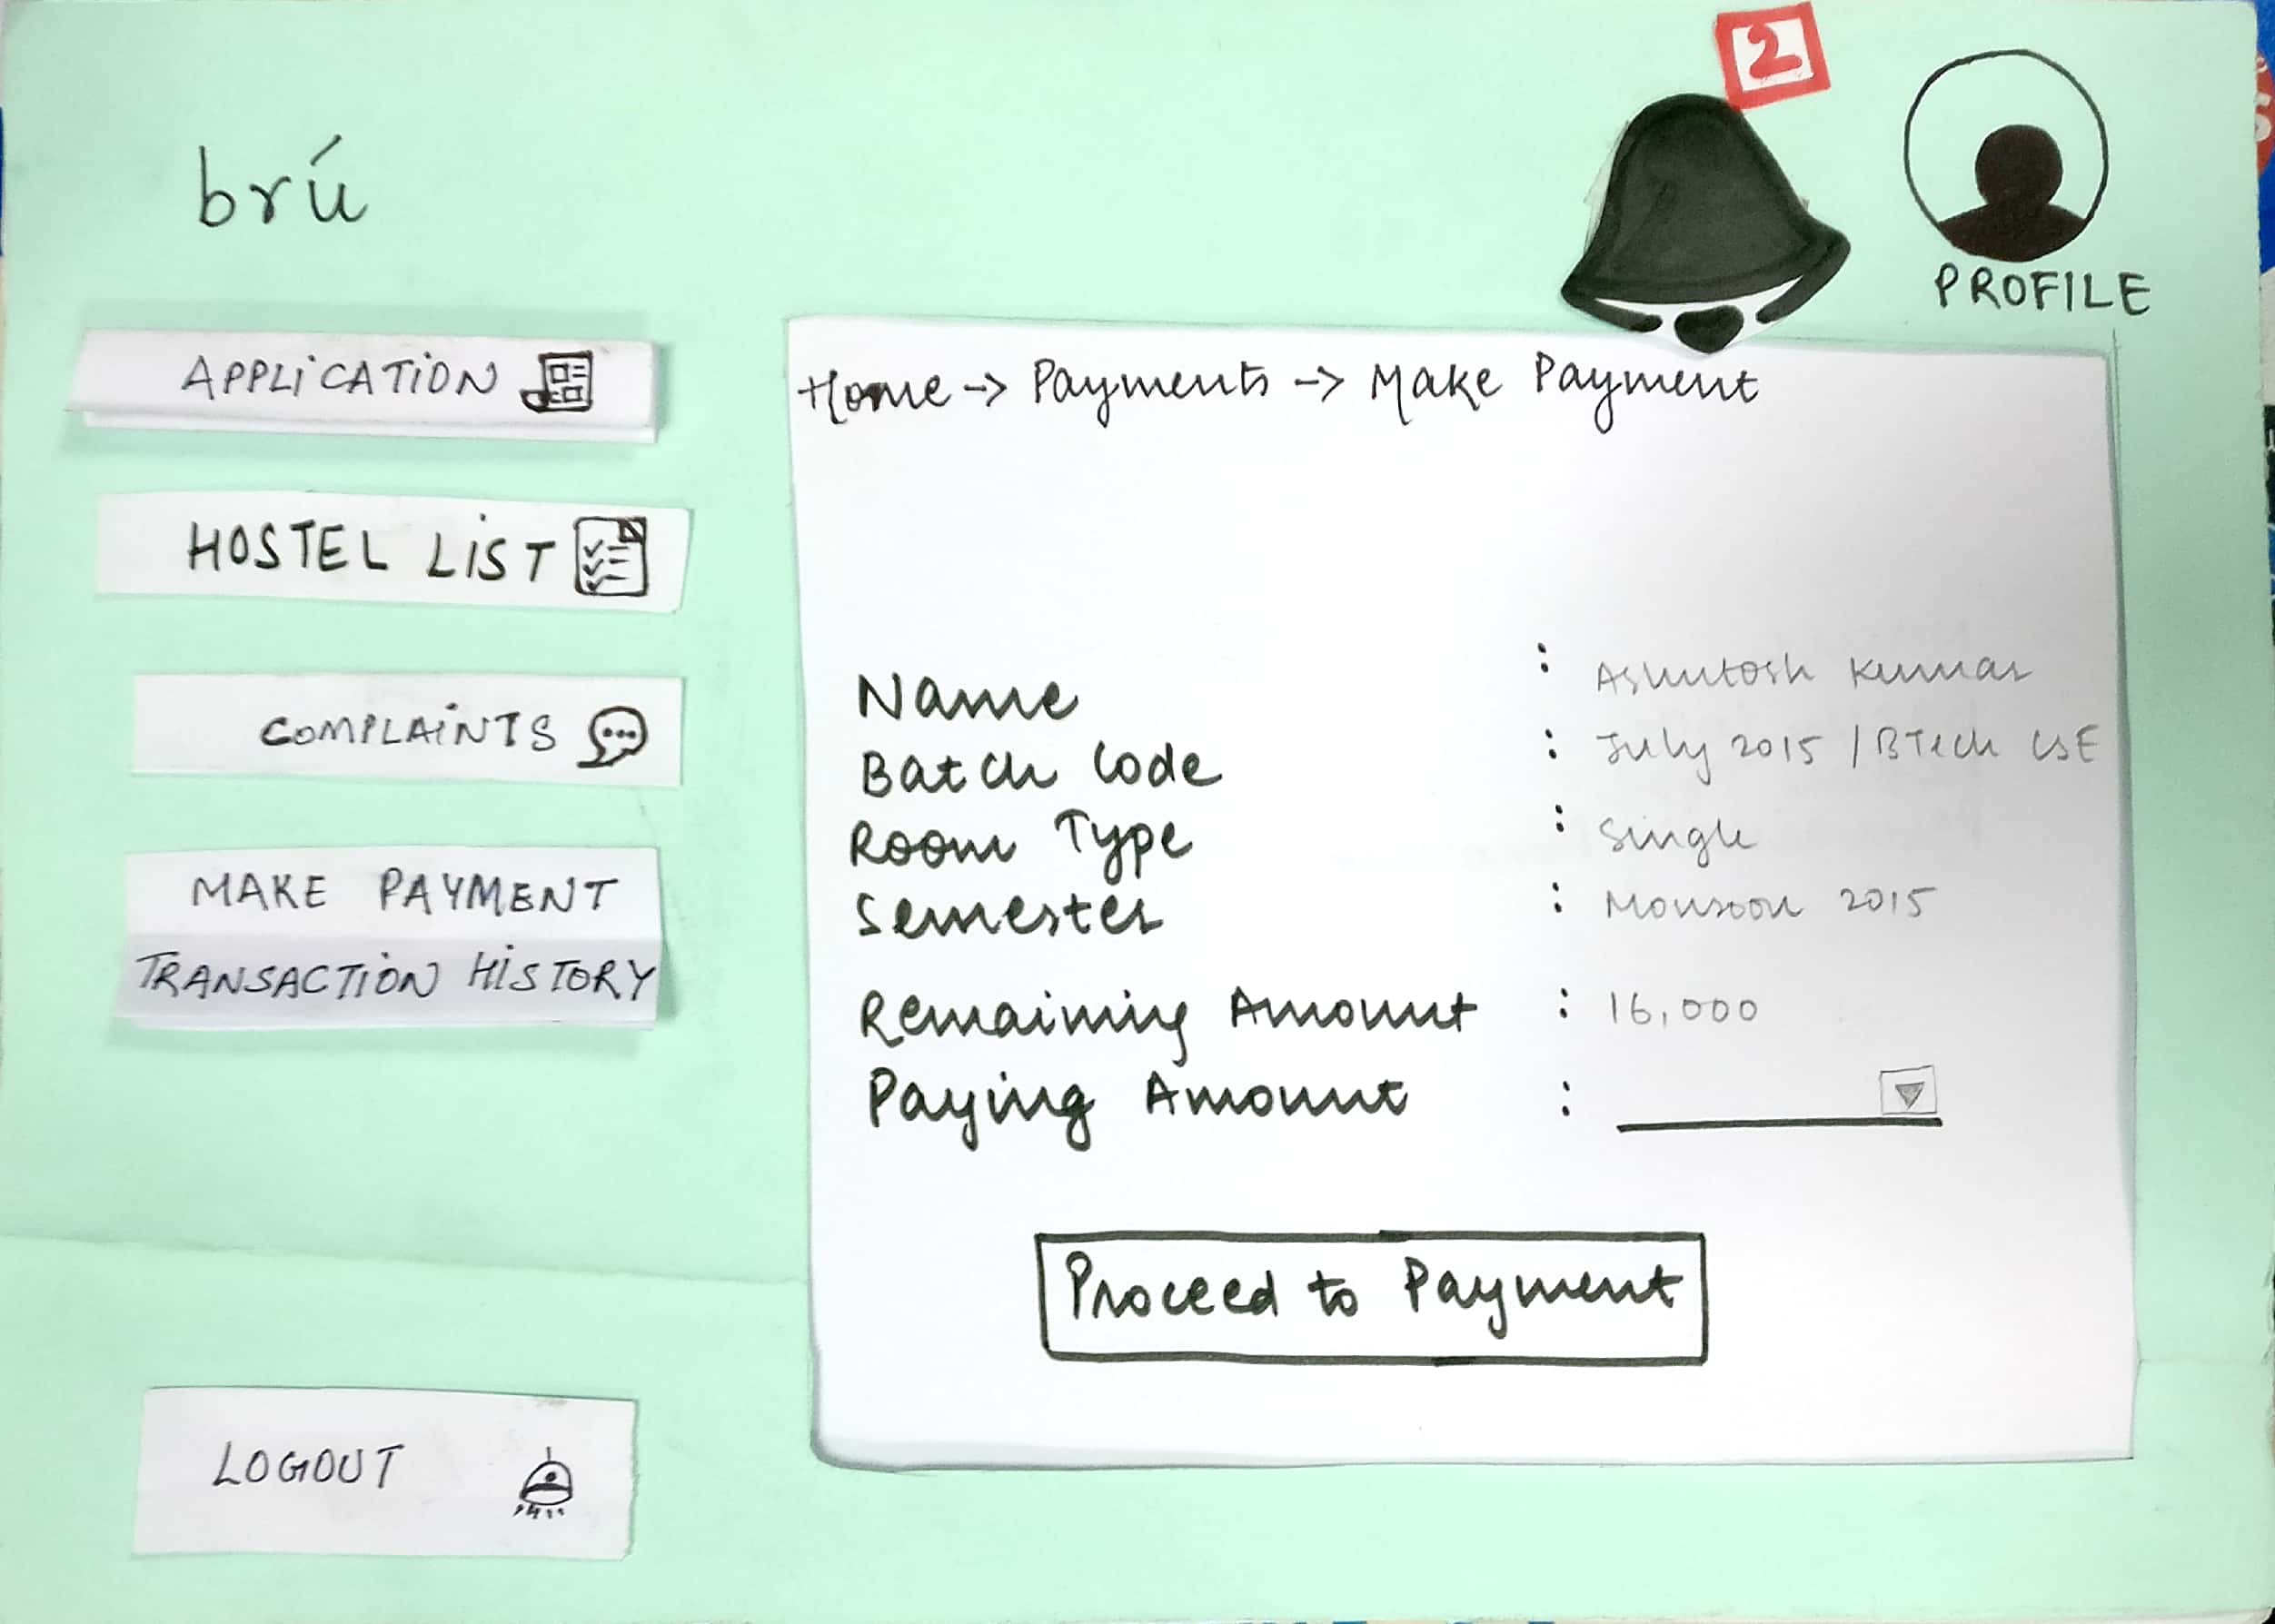 2
brú
PROFILE
APPLiCATiON
HOSTEL LiST
COMPLAiNTS
MAKE PAYMENT
TRANSACTiON HiSTORY
LOGOUT
Home -> Payments -> Make Payment
Name : Ashutosh Kumar
Batch Code : July 2015 / BTech CSE
Room Type : Single
Semester : Monsoon 2015
Remaining Amount : 16,000
Paying Amount :
Proceed to Payment